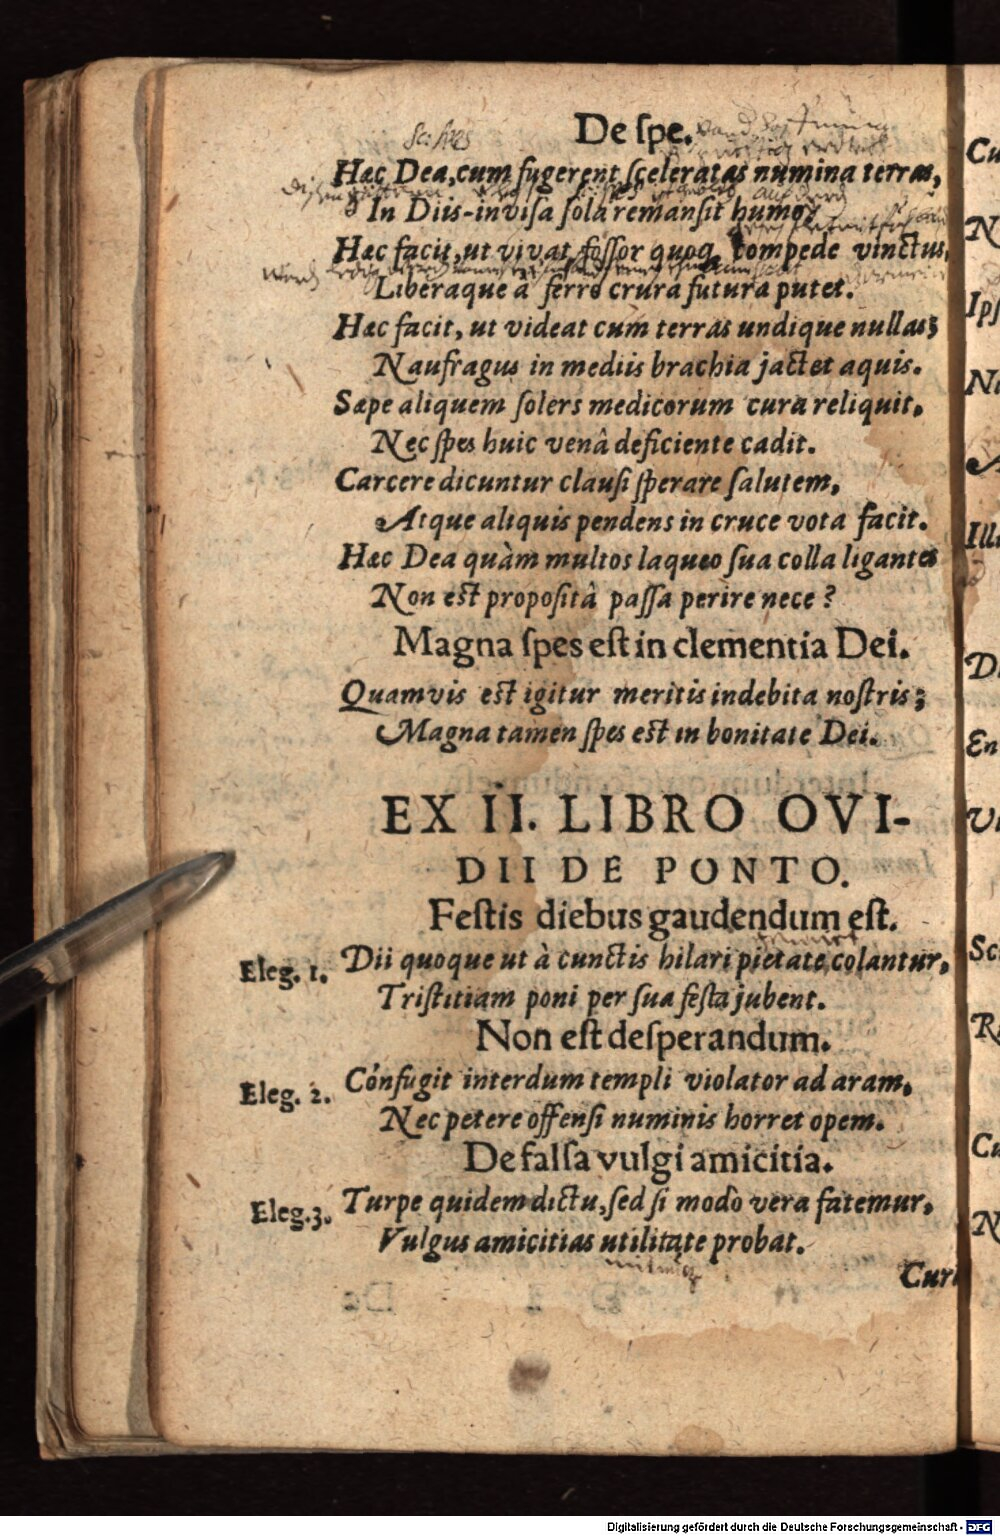 De ſpe.
Sc: ſpes
Hæc Dea, cum fugerent ſceleratas numina terras,
In Diis-inviſa ſola remanſit humo.
Hæc facit, ut vivat foſſor quoq; compede vinctus,
Liberaque à ferro crura futura putet.
Hæc facit, ut videat cum terras undique nullas;
Naufragus in mediis brachia jactet aquis.
Sæpe aliquem ſolers medicorum cura reliquit,
Nec ſpes huic venâ deficiente cadit.
Carcere dicuntur clauſi ſperare ſalutem,
Atque aliquis pendens in cruce vota facit.
Hæc Dea quàm multos laqueo ſua colla ligantes
Non eſt propoſitâ paſſa perire nece?
Magna ſpes eſt in clementia Dei.
Quamvis eſt igitur meritis indebita noſtris;
Magna tamen ſpes eſt in bonitate Dei.
EX II. LIBRO OVI-
DII DE PONTO.
Feſtis diebus gaudendum eſt.
Eleg. 1. Dii quoque ut à cunctis hilari pietate colantur,
Triſtitiam poni per ſua feſta jubent.
Non eſt deſperandum.
Eleg. 2. Confugit interdum templi violator ad aram,
Nec petere offenſi numinis horret opem.
De falſa vulgi amicitia.
Eleg. 3. Turpe quidem dictu, ſed ſi modò vera fatemur,
Vulgus amicitias utilitate probat.
Cur
Cu
N
Ipſ
Ni
A
Illi
D
En
V
Sc
R
Cu
N
Digitalisierung gefördert durch die Deutsche Forschungsgemeinschaft - DFG